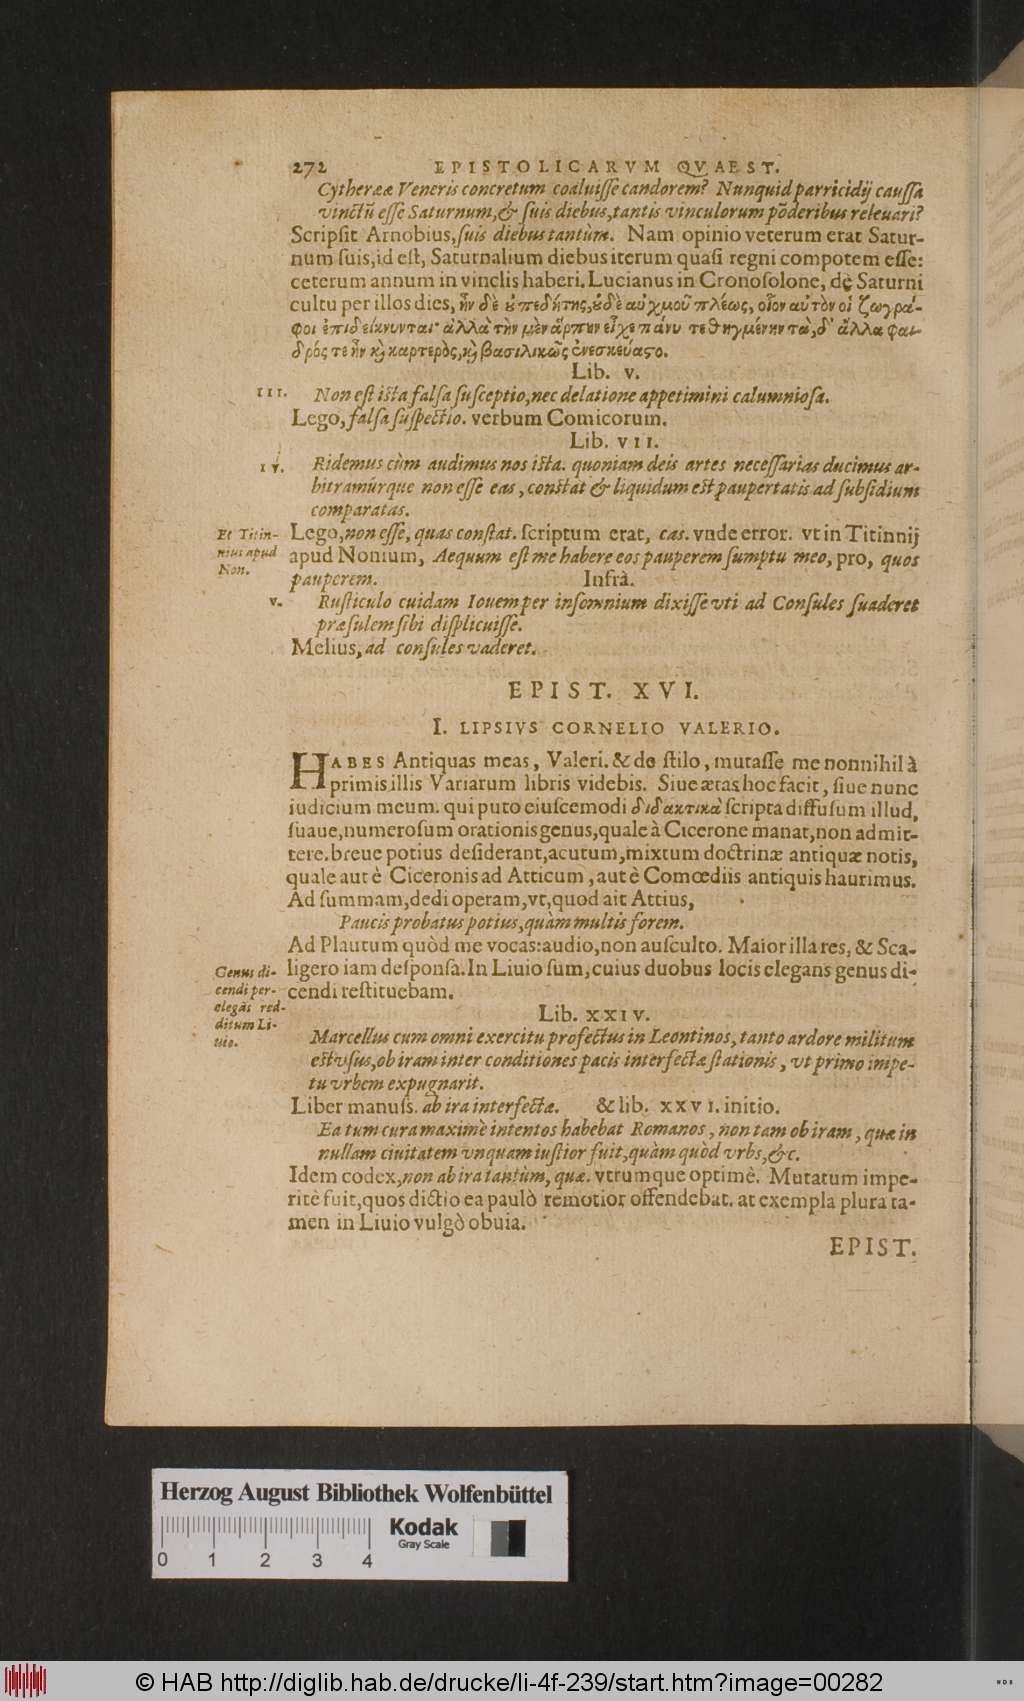 272 EPISTOLICARVM QVAEST.
Cythereæ Veneris concretum coaluiſſe candorem? Nunquid parricidij cauſſa
vinctū eſſe Saturnum, & ſuis diebus, tantis vinculorum pōderibus releuari?
Scripſit Arnobius, ſuis diebus tantùm. Nam opinio veterum erat Satur-
num ſuis, id eſt, Saturnalium diebus iterum quaſi regni compotem eſſe:
ceterum annum in vinclis haberi. Lucianus in Cronoſolone, dè Saturni
cultu per illos dies, ἦν δὲ ȣ̓ πεδήτης, ȣ̓δὲ αὐχμοῦ πλέως, οἷον αὐτὸν οἱ ζωγρά-
φοι ἐπιδείκνυνται· ἀλλὰ τὴν μὲν ἅρπην εἶχε πάνυ τεθηγμένην τὰ, δ' ἄλλα φαι-
δρός τε ἦν κὴ καρτερὸς, κὴ βασιλικῶς ἐνεσκεύαστο.
Lib. V.
III. Non eſt iſta falſa ſuſceptio, nec delatione appetimini calumnioſa.
Lego, falſa ſuſpectio. verbum Comicorum.
Lib. VII.
IV. Ridemus cùm audimus nos iſta. quoniam deis artes neceſſarias ducimus ar-
bitramúrque non eſſe eas, conſtat & liquidum eſt paupertatis ad ſubſidium
comparatas.
Et Titin-
nius apud
Non.
Lego, non eſſe, quas conſtat. ſcriptum erat, cas. vnde error. vt in Titinnij
apud Nonium, Aequum eſt me habere eos pauperem ſumptu meo, pro, quos
pauperem. Infrà.
V. Ruſticulo cuidam Iouem per inſomnium dixiſſe vti ad Conſules ſuaderet
præſulem ſibi diſplicuiſſe.
Melius, ad conſules vaderet.
EPIST. XVI.
I. LIPSIVS CORNELIO VALERIO.
HABES Antiquas meas, Valeri. & de ſtilo, mutaſſe me nonnihil à
primis illis Variarum libris videbis. Siue ætas hoc facit, ſiue nunc
iudicium meum. qui puto eiuſcemodi διδακτικὰ ſcripta diffuſum illud,
ſuaue, numeroſum orationis genus, quale à Cicerone manat, non admit-
tere. breue potius deſiderant, acutum, mixtum doctrinæ antiquæ notis,
quale aut è Ciceronis ad Atticum, aut è Comœdiis antiquis haurimus.
Ad ſummam, dedi operam, vt, quod ait Attius,
Paucis probatus potius, quàm multis forem.
Ad Plautum quòd me vocas: audio, non auſculto. Maior illa res, & Sca-
ligero iam deſponſa. In Liuio ſum, cuius duobus locis elegans genus di-
cendi reſtituebam.
Genus di-
cendi per-
elegās red-
ditum Li-
uio.
Lib. XXIV.
Marcellus cum omni exercitu profectus in Leontinos, tanto ardore militum
eſt vſus, ob iram inter conditiones pacis interfectæ ſtationis, vt primo impe-
tu vrbem expugnarit.
Liber manuſ. ab ira interfectæ. & lib. XXVI. initio.
Ea tum cura maximè intentos habebat Romanos, non tam ob iram, quæ in
nullam ciuitatem vnquam iuſtior fuit, quàm quòd vrbs, &c.
Idem codex, non ab ira tantùm, quæ. vtrumque optimè. Mutatum impe-
ritè fuit, quos dictio ea paulò remotior offendebat. at exempla plura ta-
men in Liuio vulgò obuia.
EPIST.
Herzog August Bibliothek Wolfenbüttel
Kodak
Gray Scale
0 1 2 3 4
© HAB http://diglib.hab.de/drucke/li-4f-239/start.htm?image=00282